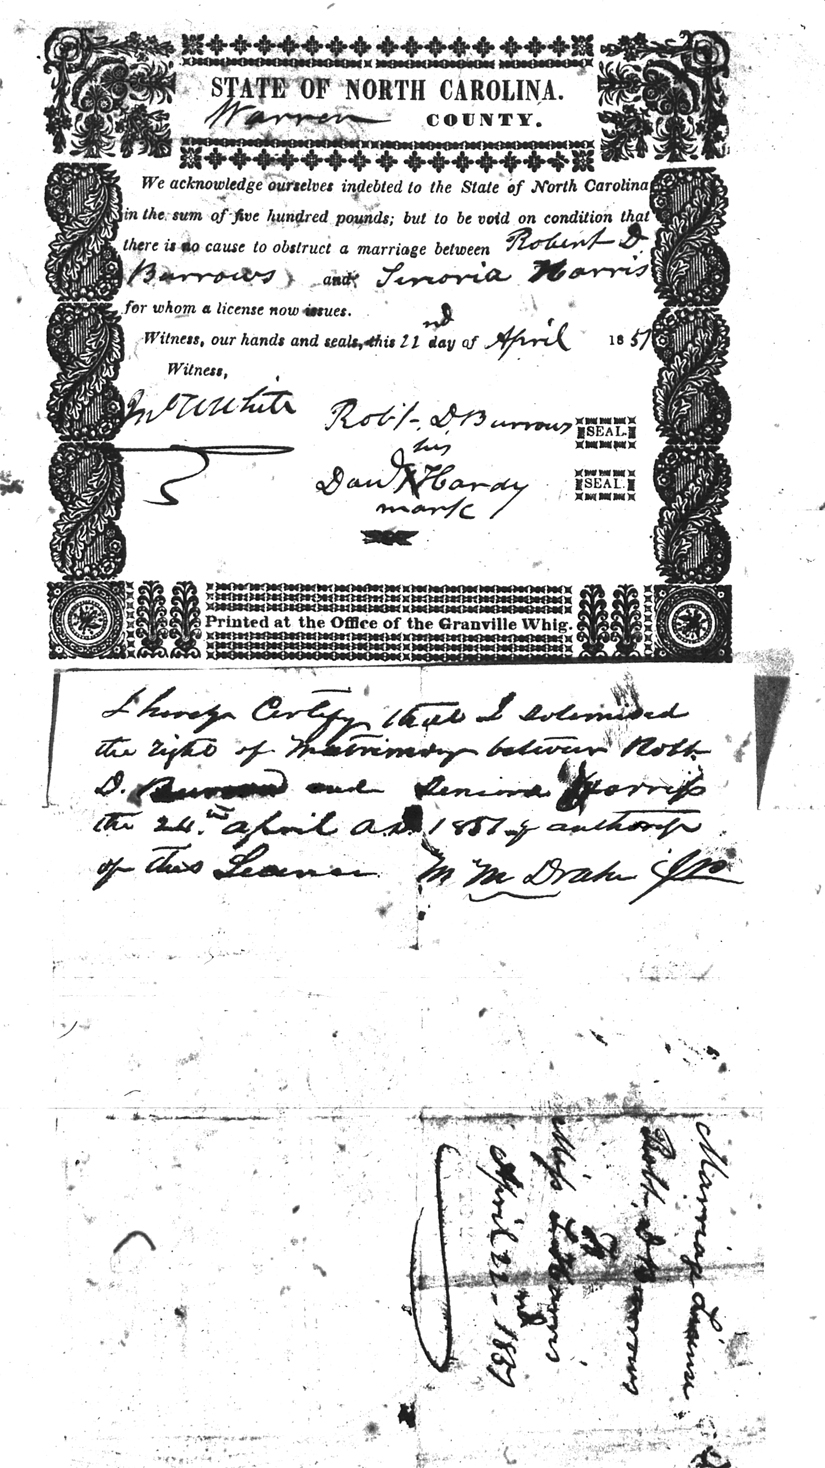 STATE OF NORTH CAROLINA.
Warren COUNTY.
We acknowledge ourselves indebted to the State of North Carolina
in the sum of five hundred pounds; but to be void on condition that
there is no cause to obstruct a marriage between Robert D
Burrows and Harris
for whom a license now issues.
nd
Witness, our hands and seals, this 22 day of April 1857
Witness,
White
Robt. D Burrows SEAL.
his
Hardy SEAL.
mark
Printed at the Office of the Granville Whig.
I hereby Certify that I Solemnised
the right of Matrimony between Robt.
D. Burrows and Harriss
the 24. April A.D. 1857
of this M M Drake
Marriage License
Robt. D Burrows
To
Miss Harris
April 22nd 1857